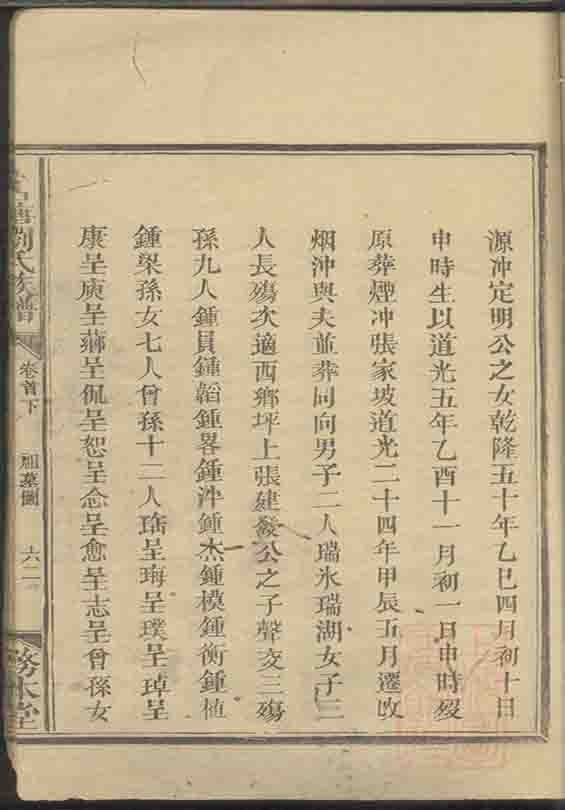 源冲定明公之女乾隆五十年乙巳四月初十日
申時生以道光五年乙酉十一月初一日申時歿
原葬煙冲張家坡道光二十四年甲辰五月遷改
烟冲與夫並葬同向男子二人瑞氷瑞湖女子三
人長殤次適西鄉坪上張建發公之子聲交三殤
孫九人鍾員鍾韜鍾畧鍾沖鍾杰鍾模鍾衡鍾植
鍾梁孫女七人曾孫十二人琦呈瑇呈璞呈琸呈
康呈庾呈呈侃呈恕呈念呈愈呈志呈曾孫女
劉氏族譜
卷首下
祖墓圖
六二
務本堂